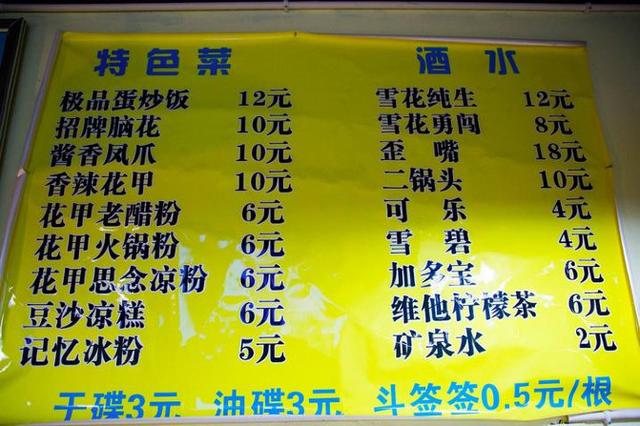 特色菜
极品蛋炒饭 12元
招牌脑花 10元
酱香凤爪 10元
香辣花甲 10元
花甲老醋粉 6元
花甲火锅粉 6元
花甲思念凉粉 6元
豆沙凉糕 6元
记忆冰粉 5元
酒水
雪花纯生 12元
雪花勇闯 8元
歪嘴 18元
二锅头 10元
可乐 4元
雪碧 4元
加多宝 6元
维他柠檬茶 6元
矿泉水 2元
干碟3元 油碟3元 斗签签0.5元/根